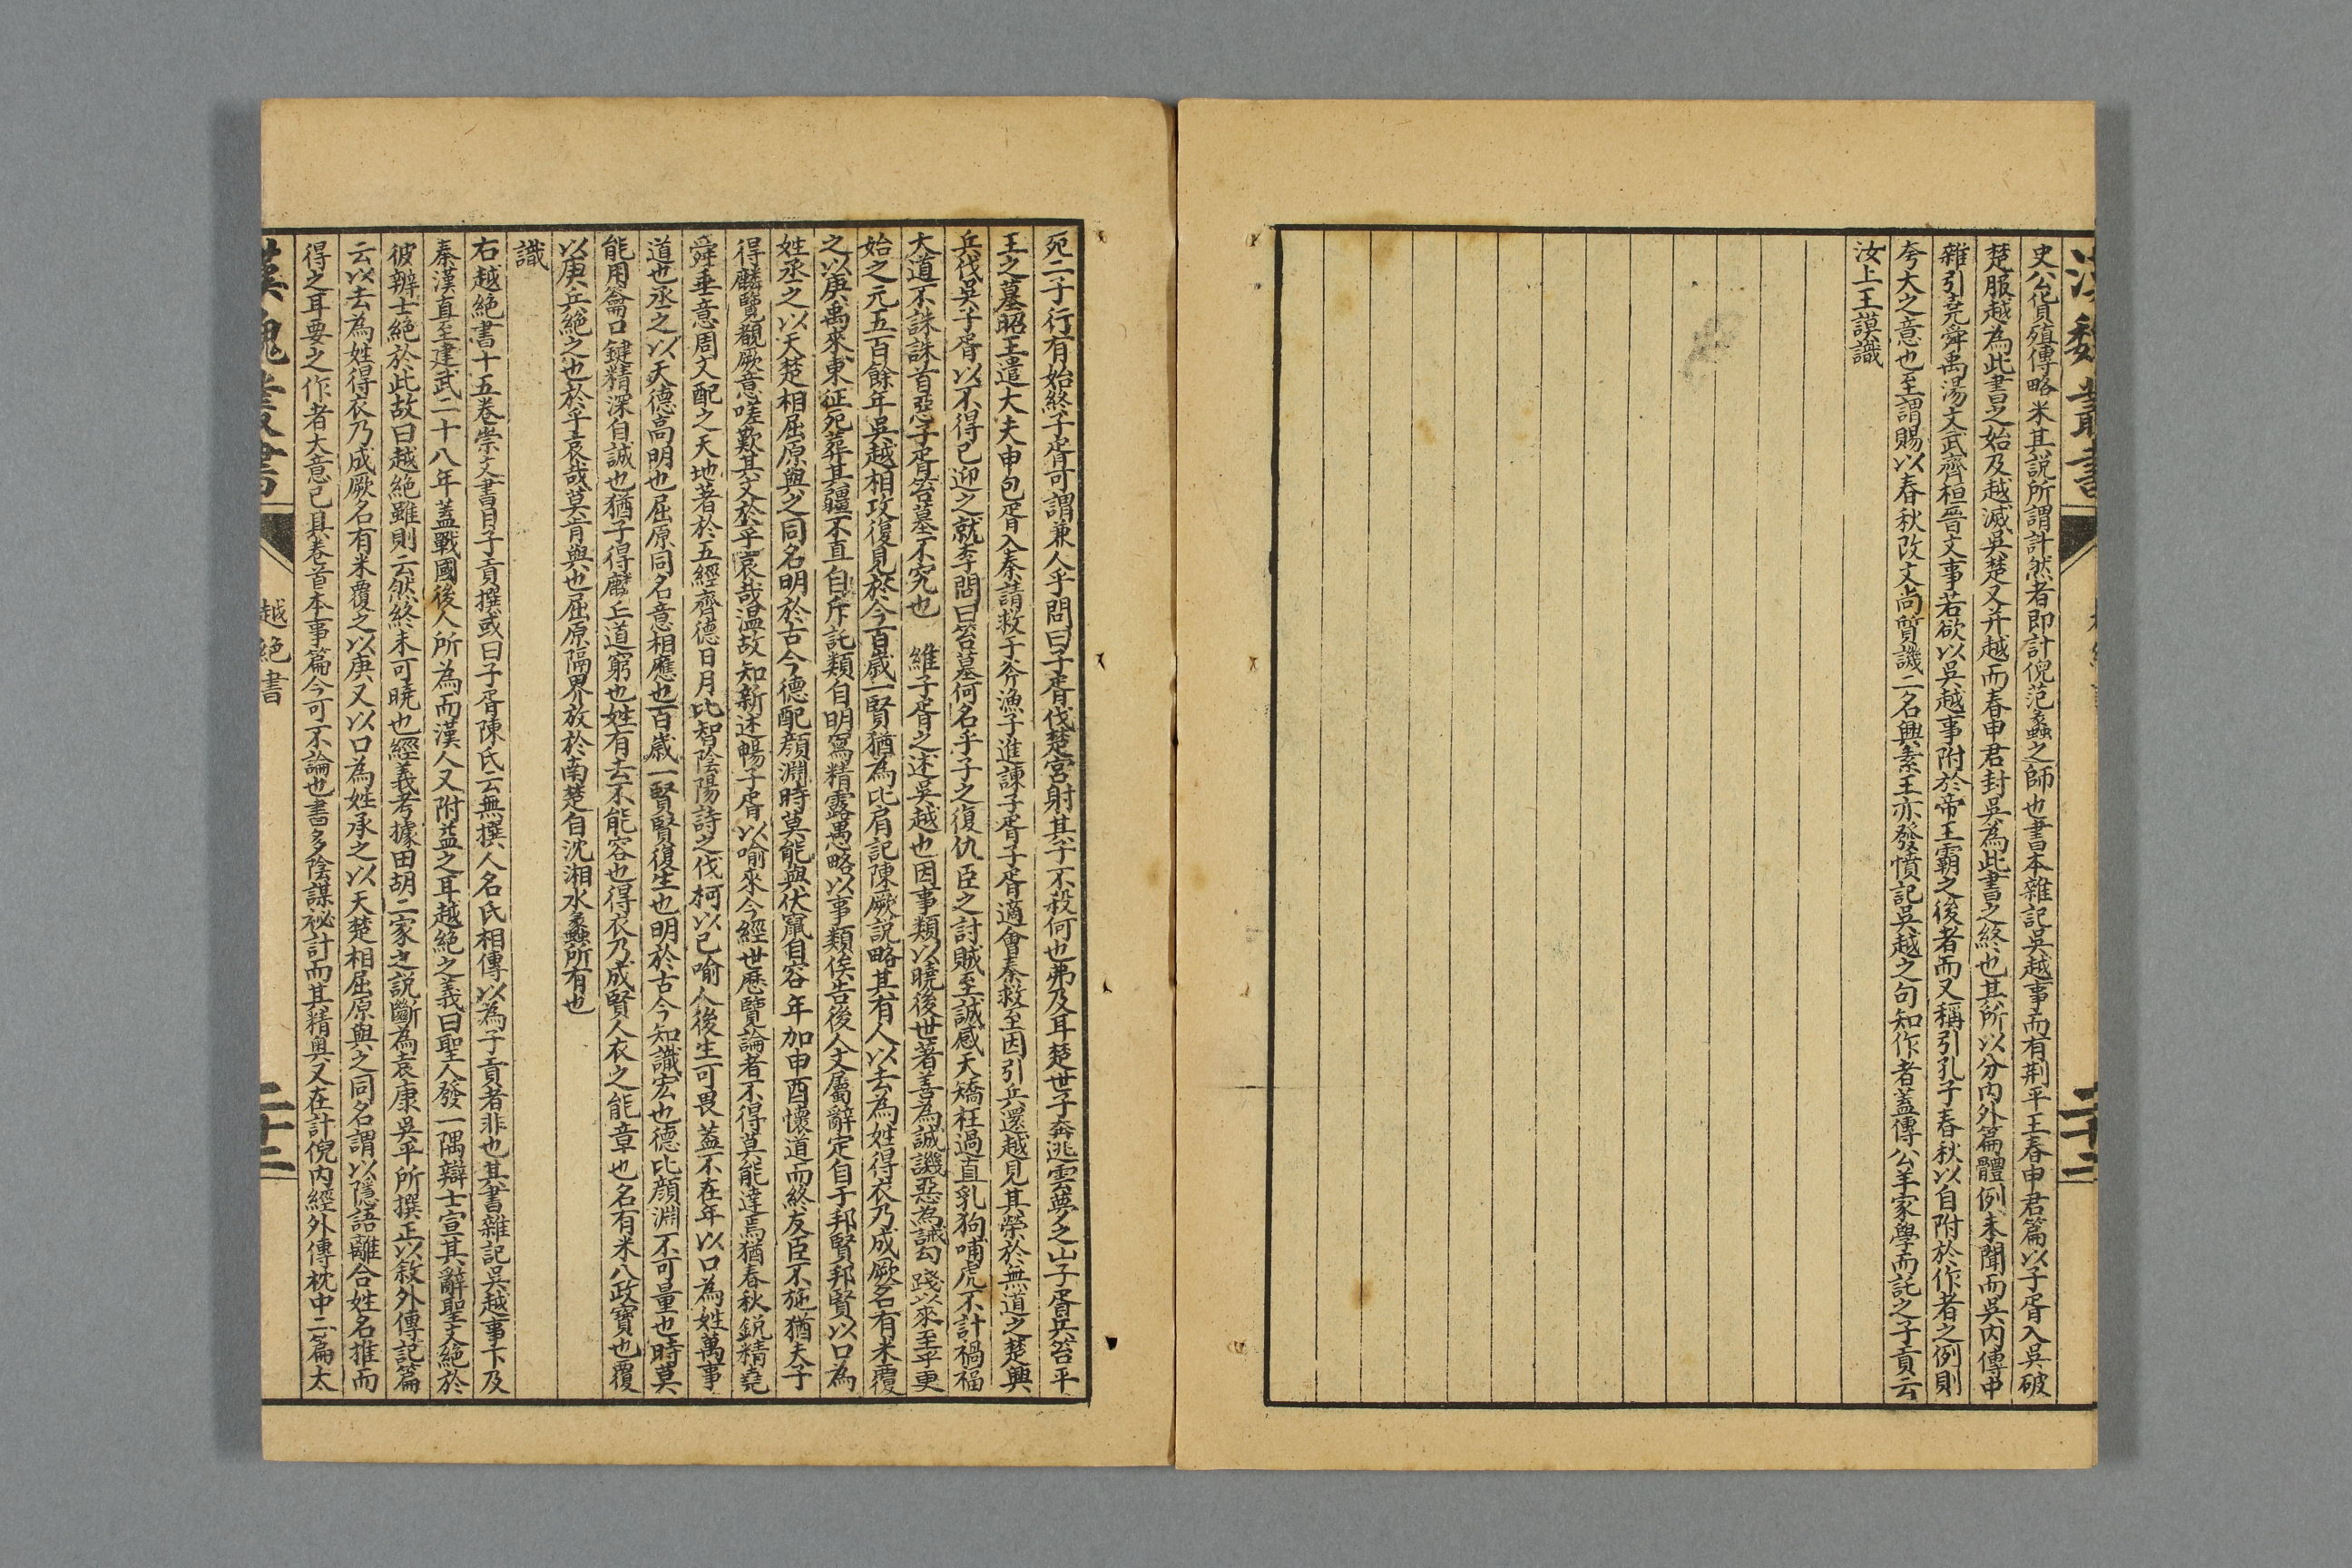 死二子行有始終子胥可謂兼人乎問曰子胥伐楚宮射其子不殺何也弗及耳楚世子奔逃雲夢之山子胥兵笞平
王之墓昭王遣大夫申包胥入秦請救于斧漁子進諫子胥子胥適會秦救至因引兵還越見其榮於無道之楚興
兵伐吳子胥以不得已迎之就李問曰笞墓何名乎子之復仇臣之討賊至誠感天矯枉過直乳狗哺虎不計禍福
大道不誅誅首惡子胥笞墓不究也　維子胥之述吳越也因事類以曉後世著善為誠譏惡為誡句踐以來至乎更
始之元五百餘年吳越相攻復見於今百歲一賢猶為比肩記陳厥說略其有人以去為姓得衣乃成厥名有米覆
之以庚禹來東征死葬其疆不直自斥託類自明寫精露愚略以事類俟告後人文屬辭定自于邦賢邦賢以口為
姓丞之以天楚相屈原與之同名明於古今德配顏淵時莫能與伏竄自容年加申酉懷道而終友臣不施猶夫子
得麟覽覩厥意嗟歎其文於乎哀哉温故知新述暢子胥以喻來今經世歷覽論者不得莫能達焉猶春秋銳精堯
舜垂意周文配之天地著於五經齊德日月比智陰陽詩之伐柯以已喻人後生可畏蓋不在年以口為姓萬事
道也丞之以天德高明也屈原同名意相應也百歲一賢賢復生也明於古今知識宏也德比顏淵不可量也時莫
能用籥口鍵精深自誠也猶子得麟丘道窮也姓有去不能容也得衣乃成賢人衣之能章也名有米八政寶也覆
以庚兵絕之也於乎哀哉莫肯與也屈原隔界放於南楚自沈湘水蠡所有也
識
右越絕書十五卷崇文書目子貢撰或曰子胥陳氏云無撰人名氏相傳以為子貢者非也其書雜記吳越事下及
秦漢直至建武二十八年蓋戰國後人所為而漢人又附益之耳越絕之義曰聖人發一隅辯士宣其辭聖文絕於
彼辯士絕於此故曰越絕雖則云然終未可曉也經義考據田胡二家之說斷為袁康吳平所撰正以敘外傳記篇
云以去為姓得衣乃成厥名有米覆之以庚又以口為姓承之以天楚相屈原與之同名謂以隱語離合姓名推而
得之耳要之作者大意已具卷首本事篇今可不論也書多陰謀祕計而其精奧又在計倪內經外傳枕中二篇太
漢魏叢書
越絕書
二十二
漢魏叢書
越絕書
二十二
史公貨殖傳略采其說所謂計然者即計倪范蠡之師也書本雜記吳越事而有荆平王春申君篇以子胥入吳破
楚服越為此書之始及越滅吳楚又并越而春申君封吳為此書之終也其所以分內外篇體例未聞而吳內傳中
雜引堯舜禹湯文武齊桓晉文事若欲以吳越事附於帝王霸之後者而又稱引孔子春秋以自附於作者之例則
夸大之意也至謂賜以春秋改文尚質譏二名興素王亦發憤記吳越之句知作者蓋傳公羊家學而託之子貢云
汝上王謨識